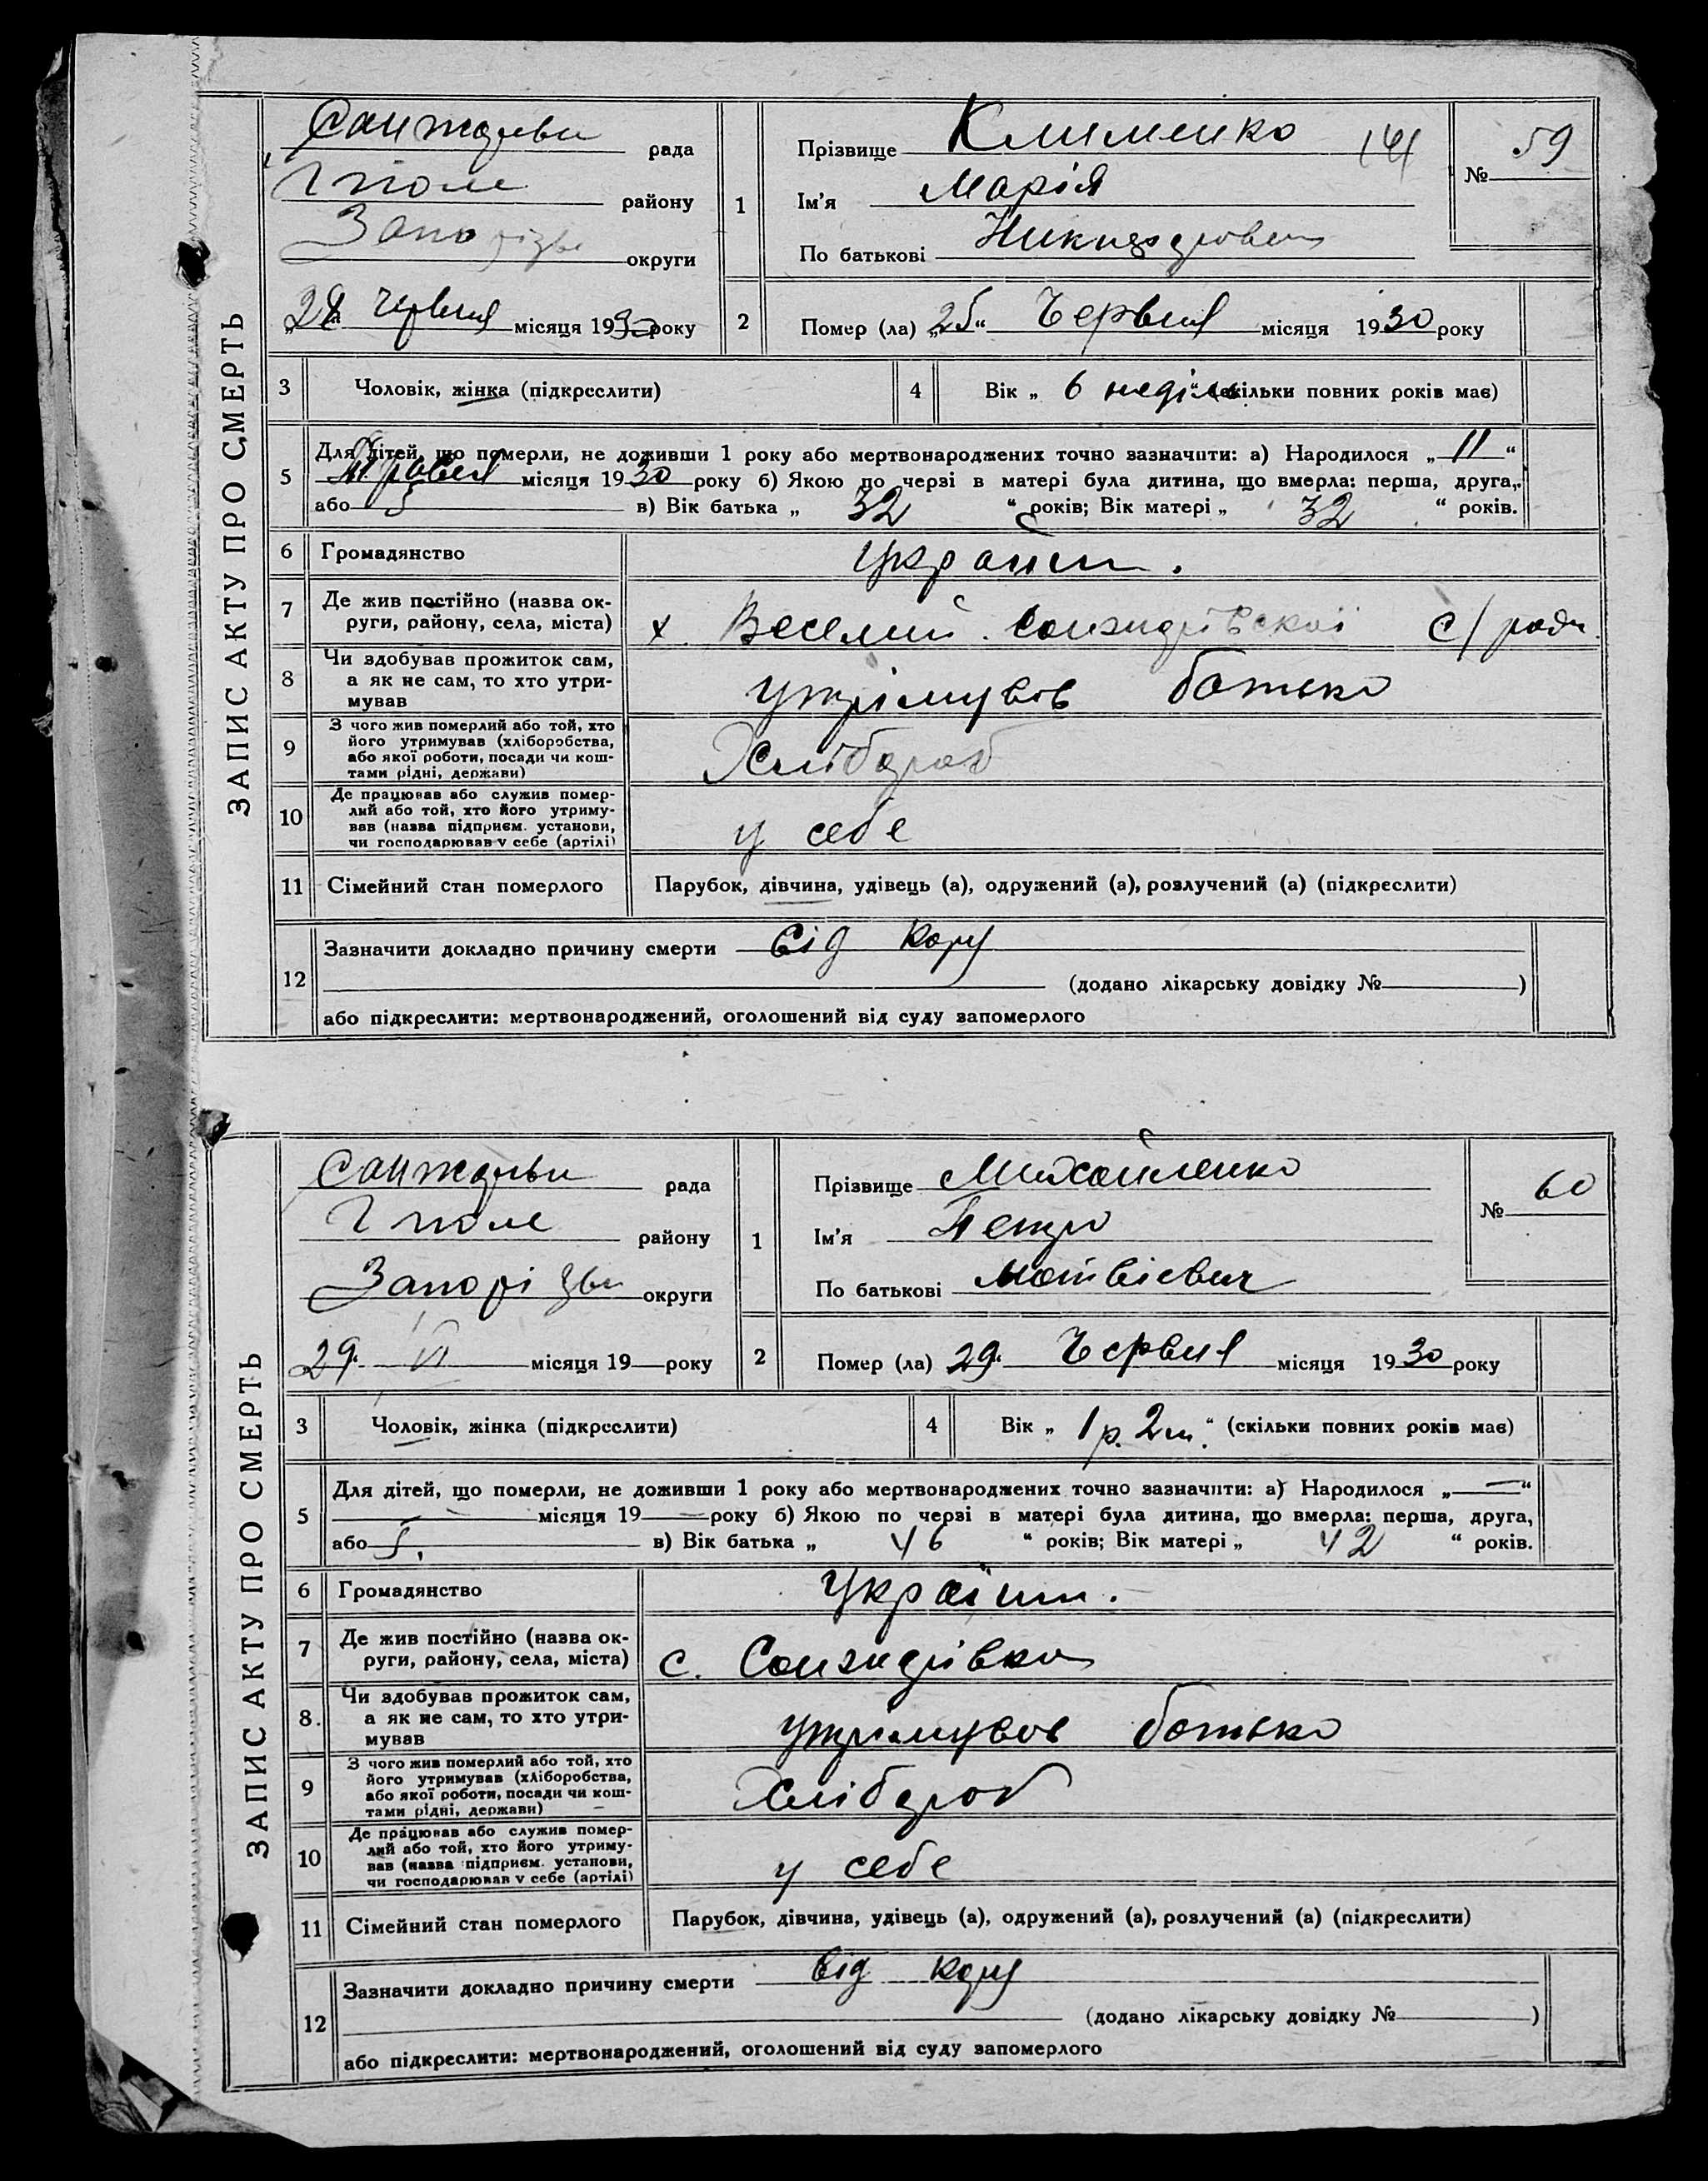 ЗАПИС АКТУ ПРО СМЕРТЬ
Санждрівськ рада
Г поле району
Запорізьк округи
28 червня місяця 1930 року
1
Прізвище Клименко 141
Ім'я Марія
По батькові
№ 59
2 Помер (ла) „25“ Червня місяця 1930 року
3 Чоловік, жінка (підкреслити)
4 Вік „ 6 неділь“ (скільки повних років має)
5 Для дітей, що померли, не доживши 1 року або мертвонароджених точно зазначити: а) Народилося „11“
травня місяця 1930 року б) Якою по черзі в матері була дитина, що вмерла: перша, друга,
або 5 в) Вік батька „ 32 “ років; Вік матері „ 32 “ років.
6 Громадянство Україн.
7 Де жив постійно (назва ок-
руги, району, села, міста) х. Веселий. Санждрівської с/ради.
8 Чи здобував прожиток сам,
а як не сам, то хто утри-
мував утрімував батько
9 З чого жив померлий або той, хто
його утримував (хліборобства,
або якої роботи, посади чи кош-
тами рідні, держави) Хлібороб
10 Де працював або служив помер-
лий або той, хто його утриму-
вав (назва підприєм. установи,
чи господарював у себе (артілі) у себе
11 Сімейний стан померлого Парубок, дівчина, удівець (а), одружений (а), розлучений (а) (підкреслити)
12 Зазначити докладно причину смерти від кору
(додано лікарську довідку № )
або підкреслити: мертвонароджений, оголошений від суду запомерлого
ЗАПИС АКТУ ПРО СМЕРТЬ
Санждрівськ рада
Г поле району
Запорізьк округи
29 VI місяця 19 року
1
Прізвище Михайленко
Ім'я Петро
По батькові Матвієвич
№ 60
2 Помер (ла) 29 Червня місяця 1930 року
3 Чоловік, жінка (підкреслити)
4 Вік „ 1 р. 2 м.“ (скільки повних років має)
5 Для дітей, що померли, не доживши 1 року або мертвонароджених точно зазначити: а) Народилося „—“
— місяця 19— року б) Якою по черзі в матері була дитина, що вмерла: перша, друга,
або 5. в) Вік батька „ 46 “ років; Вік матері „ 42 “ років.
6 Громадянство Україн.
7 Де жив постійно (назва ок-
руги, району, села, міста) с. Санждрівка
8. Чи здобував прожиток сам,
а як не сам, то хто утри-
мував утрімував батько
9 З чого жив померлий або той, хто
його утримував (хліборобства,
або якої роботи, посади чи кош-
тами рідні, держави) Хлібороб
10 Де працював або служив помер-
лий або той, хто його утриму-
вав (назва підприєм. установи,
чи господарював у себе (артілі) у себе
11 Сімейний стан померлого Парубок, дівчина, удівець (а), одружений (а), розлучений (а) (підкреслити)
12 Зазначити докладно причину смерти від кору
(додано лікарську довідку № )
або підкреслити: мертвонароджений, оголошений від суду запомерлого